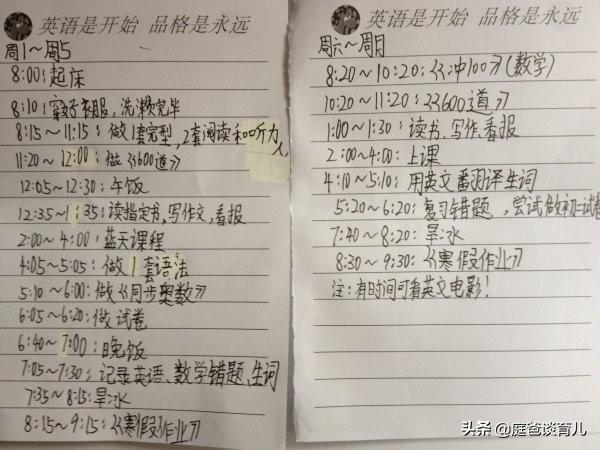 英语是开始 品格是永远
周1～周5
8:00:起床
8:10:穿好衣服,洗漱完毕
8:15～11:15:做1套完型,2套阅读和听力
11:20～12:00:做《600道》
12:05～12:30:午饭
12:35～1:35:读指定书,写作文,看报
2:00～4:00:蓝天课程
4:05～5:05:做1套语法
5:10～6:00:做《同步奥数》
6:05～6:20:做试卷
6:40～7:00:晚饭
7:05～7:30:记录英语、数学错题、生词
7:35～8:15:
8:15～9:15:《寒假作业》
英语是开始 品格是永远
周六～周日
8:20～10:20:《冲100》(数学)
10:20～11:20:《600道》
1:00～1:30:读书、写作、看报
2:00～4:00:上课
4:10～5:10:用英文翻译生词
5:20～6:20:复习错题,尝试做初一试卷
7:40～8:20:
8:30～9:30:《寒假作业》
注:有时间可看英文电影!
头条 @庭爸谈育儿